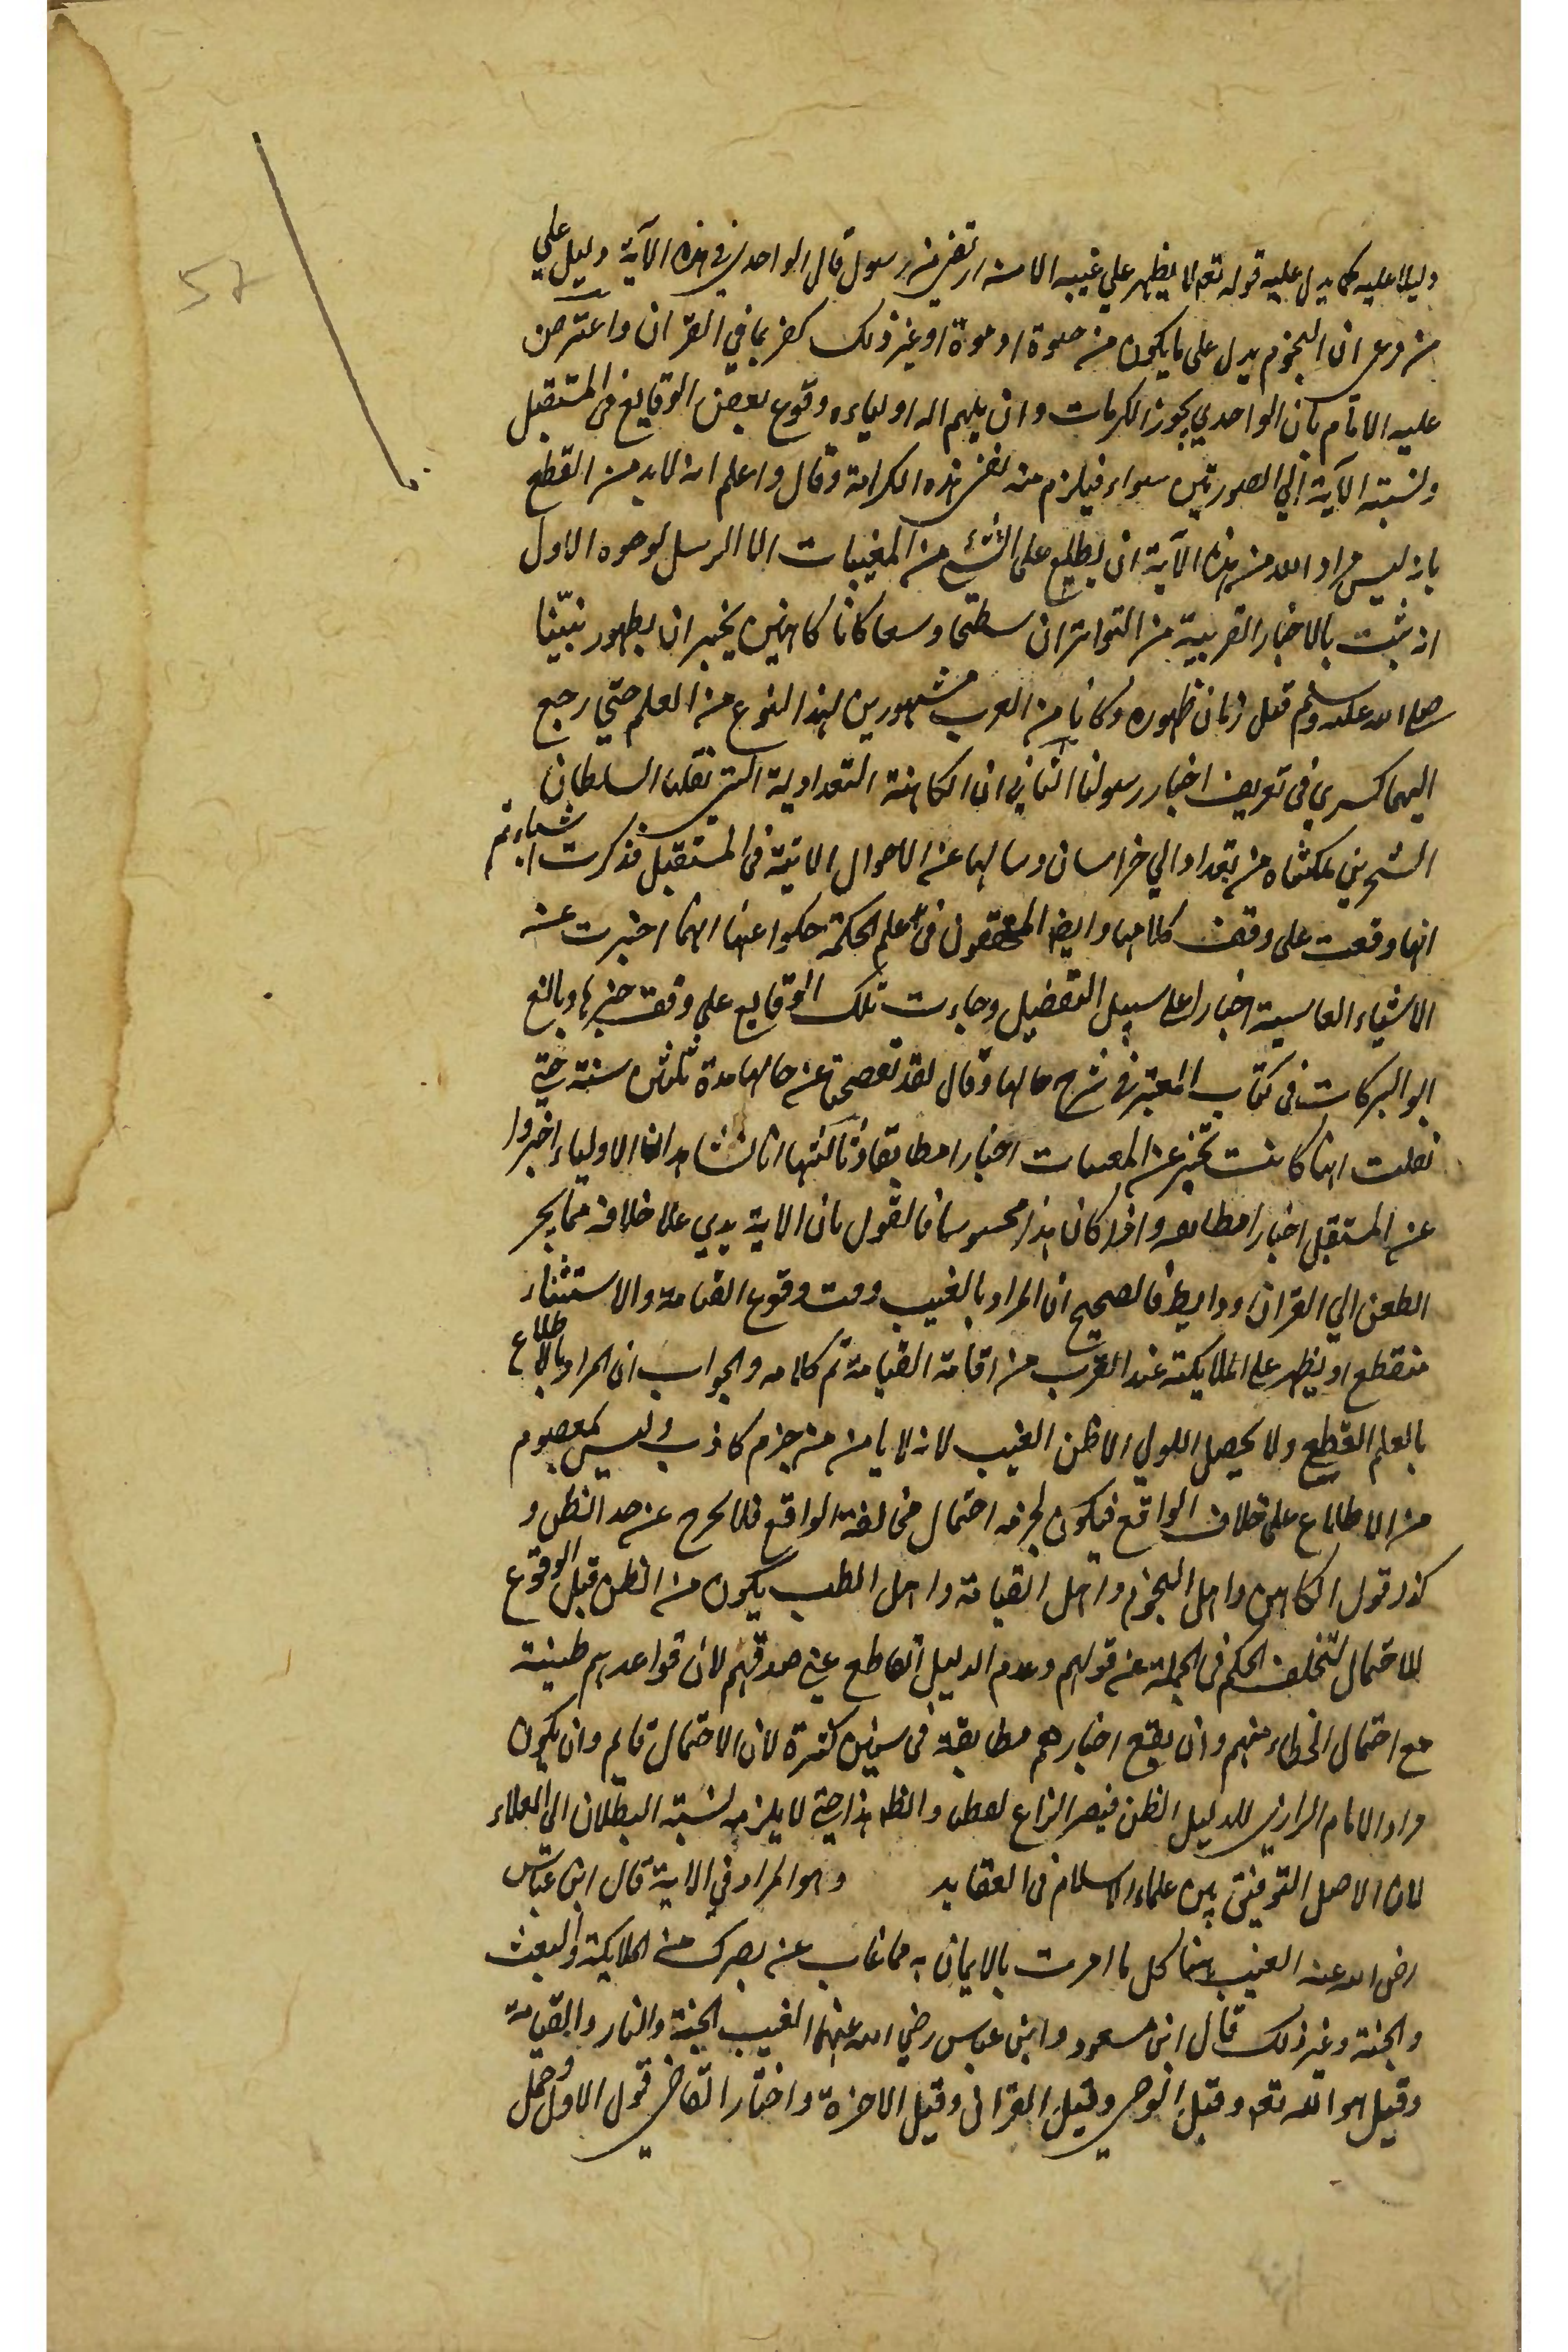 دليلا عليه كما يدل عليه قوله تعم لا يظهر علي غيبه الا من ارتضى من رسول قال الواحدي في هذه الآية دليل علي
من ادعى ان النجوم يدل على ما يكون من حيوة او موت او غير ذلك كفر بما في القران واعترض
عليه الامام بان الواحدي يجوز الكرامات وان يلهم الله اولياءه وقوع بعض الوقايع في المستقبل
ونسبته الآية الي الصورتين سواء فيلزم منه نفي هذه الكرامة وقال واعلم انه لا بد من القطع
بانه ليس مراد الله من هذه الآية ان يطلع على الشئ من المغيبات الا الرسل لوجوه الاول
انه ثبت بالاخبار القريبة من التواتر ان سطيحا وسقا كانا كاهنين يخبران بظهور نبيّنا
صلى الله عليه وسلم قبل زمان ظهوره وكانا من العرب مشهورين لهذا النوع من العلم حتي رجع
اليهما كسري في تعريف اخبار رسولنا الثاني ان الكاهنة البغدادية التي نقلها السلطان
السنجر بن ملكشاه من بغداد الي خراسان وسالها عن الاحوال الاتية في المستقبل فذكرت اشياء ثم
انها وقعت على وفق كلامها وايضا المحققون في علم الحكمة حكوا عنها انها اخبرت عن
الاشياء الغايبة اخبارا على سبيل التفصيل وجاءت تلك الوقايع علي وفق خبرها وبالغ
ابو البركات في كتاب المعتبر في شرح حالها وقال لقد تفحصت عن حالها مدة ثلثين سنة حتي
تعلمت انها كانت تخبر عن المغيبات اخبارا مطابقا وثالثها انا نشاهد ان الاولياء اخبروا
عن المستقبل اخبارا مطابقه واذا كان هذا محسوسا فالقول بان الاية يدي على خلافه مما يجر
الطعن الي القران وايضا فالصحيح ان المراد بالغيب وقت وقوع القيامة والاستثناء
منقطع او يظهر علي الملايكته عند القرب من اقامة القيامة تم كلامه والجواب ان المراد بالاطلاع
بالعلم القطع ولا يحصل للولي الا ظن الغيب لانه لا يامن من جزم كاذب وليس بمعصوم
من الاطلاع على خلاف الواقع فيكون لجزمه احتمال مخالفة الواقع فلا يخرج عن حد الظن و
كذا قول الكاهن واهل النجوم واهل القيافة واهل الطب يكون من الظن قبل الوقوع
للاحتمال لتخلف الحكم في الجملة عن قولهم وعدم الدليل القاطع علي صدقهم لان قواعدهم ظنية
مع احتمال الخطاء منهم وان يقع اخبارهم مطابقة في سنين كثيرة لان الاحتمال قايم وان يكون
مراد الامام الرازي للدليل الظن فيصير النزاع لفظيا والظاهر هذا حتي لا يلزمه نسبة البطلان الي العلماء
لان الاصل التوفيق بين علماء الاسلام في العقايد وهو المراد في الاية قال ابن عباس
رضي الله عنه الغيب هنا كل ما امرت بالايمان به مما غاب عن بصرك من الملايكة والبعث
والجنة وغير ذلك قال ابن مسعود وابن عباس رضي الله عنهما الغيب الجنة والنار والقيامة
وقيل هو الله تعم وقيل الوحي وقيل القران وقيل الاخرة واختار القاضي قول الاول وحمل